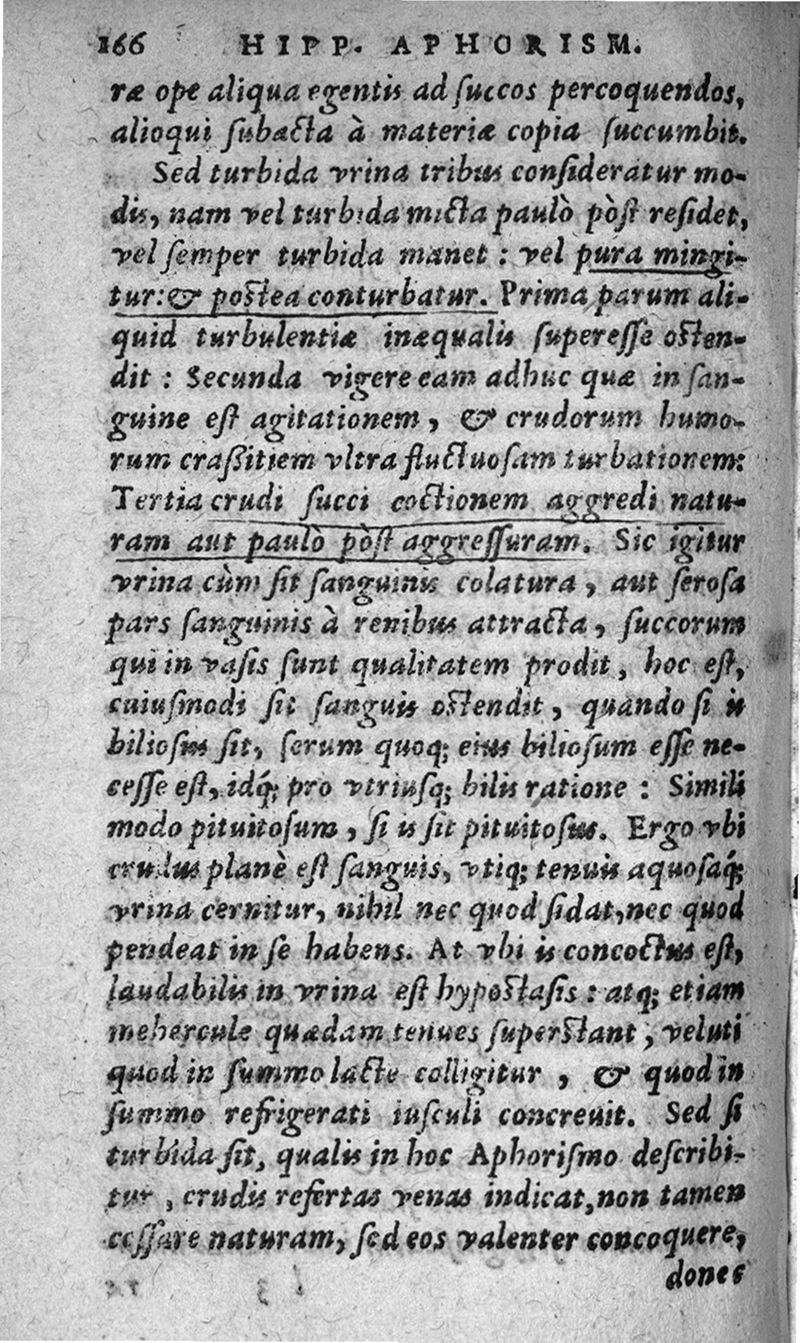 166 HIPP. APHORISM.
ræ ope aliqua egentis ad ſuccos percoquendos,
alioqui ſubacta à materiæ copia ſuccumbit.
Sed turbida vrina tribus conſideratur mo-
dis, nam vel turbida micta paulò pòſt reſidet,
vel ſemper turbida manet : vel pura mingi-
tur: & poſtea conturbatur. Prima parum ali-
quid turbulentiæ inæqualis ſupereſſe oſten-
dit : Secunda vigere eam adhuc quæ in ſan-
guine eſt agitationem, & crudorum humo-
rum craſsitiem vltra fluctuoſam turbationem:
Tertia crudi ſucci coctionem aggredi natu-
ram aut paulò pòſt aggreſſuram. Sic igitur
vrina cùm ſit ſanguinis colatura, aut ſeroſa
pars ſanguinis à renibus attracta, ſuccorum
qui in vaſis ſunt qualitatem prodit, hoc eſt,
cuiuſmodi ſit ſanguis oſtendit, quando ſi is
bilioſus ſit, ſerum quoq; eius bilioſum eſſe ne-
ceſſe eſt, idq́; pro vtriuſq; bilis ratione : Simili
modo pituitoſum, ſi is ſit pituitoſus. Ergo vbi
crudus planè eſt ſanguis, vtiq; tenuis aquoſaq́;
vrina cernitur, nihil nec quod ſidat, nec quod
pendeat in ſe habens. At vbi is concoctus eſt,
laudabilis in vrina eſt hypoſtaſis : atq; etiam
mehercule quædam tenues ſuperſtant, veluti
quod in ſummo lacte colligitur, & quod in
ſummo refrigerati iuſculi concreuit. Sed ſi
turbida ſit, qualis in hoc Aphoriſmo deſcribi-
tur, crudis refertas venas indicat, non tamen
ceſſare naturam, ſed eos valenter concoquere,
donec